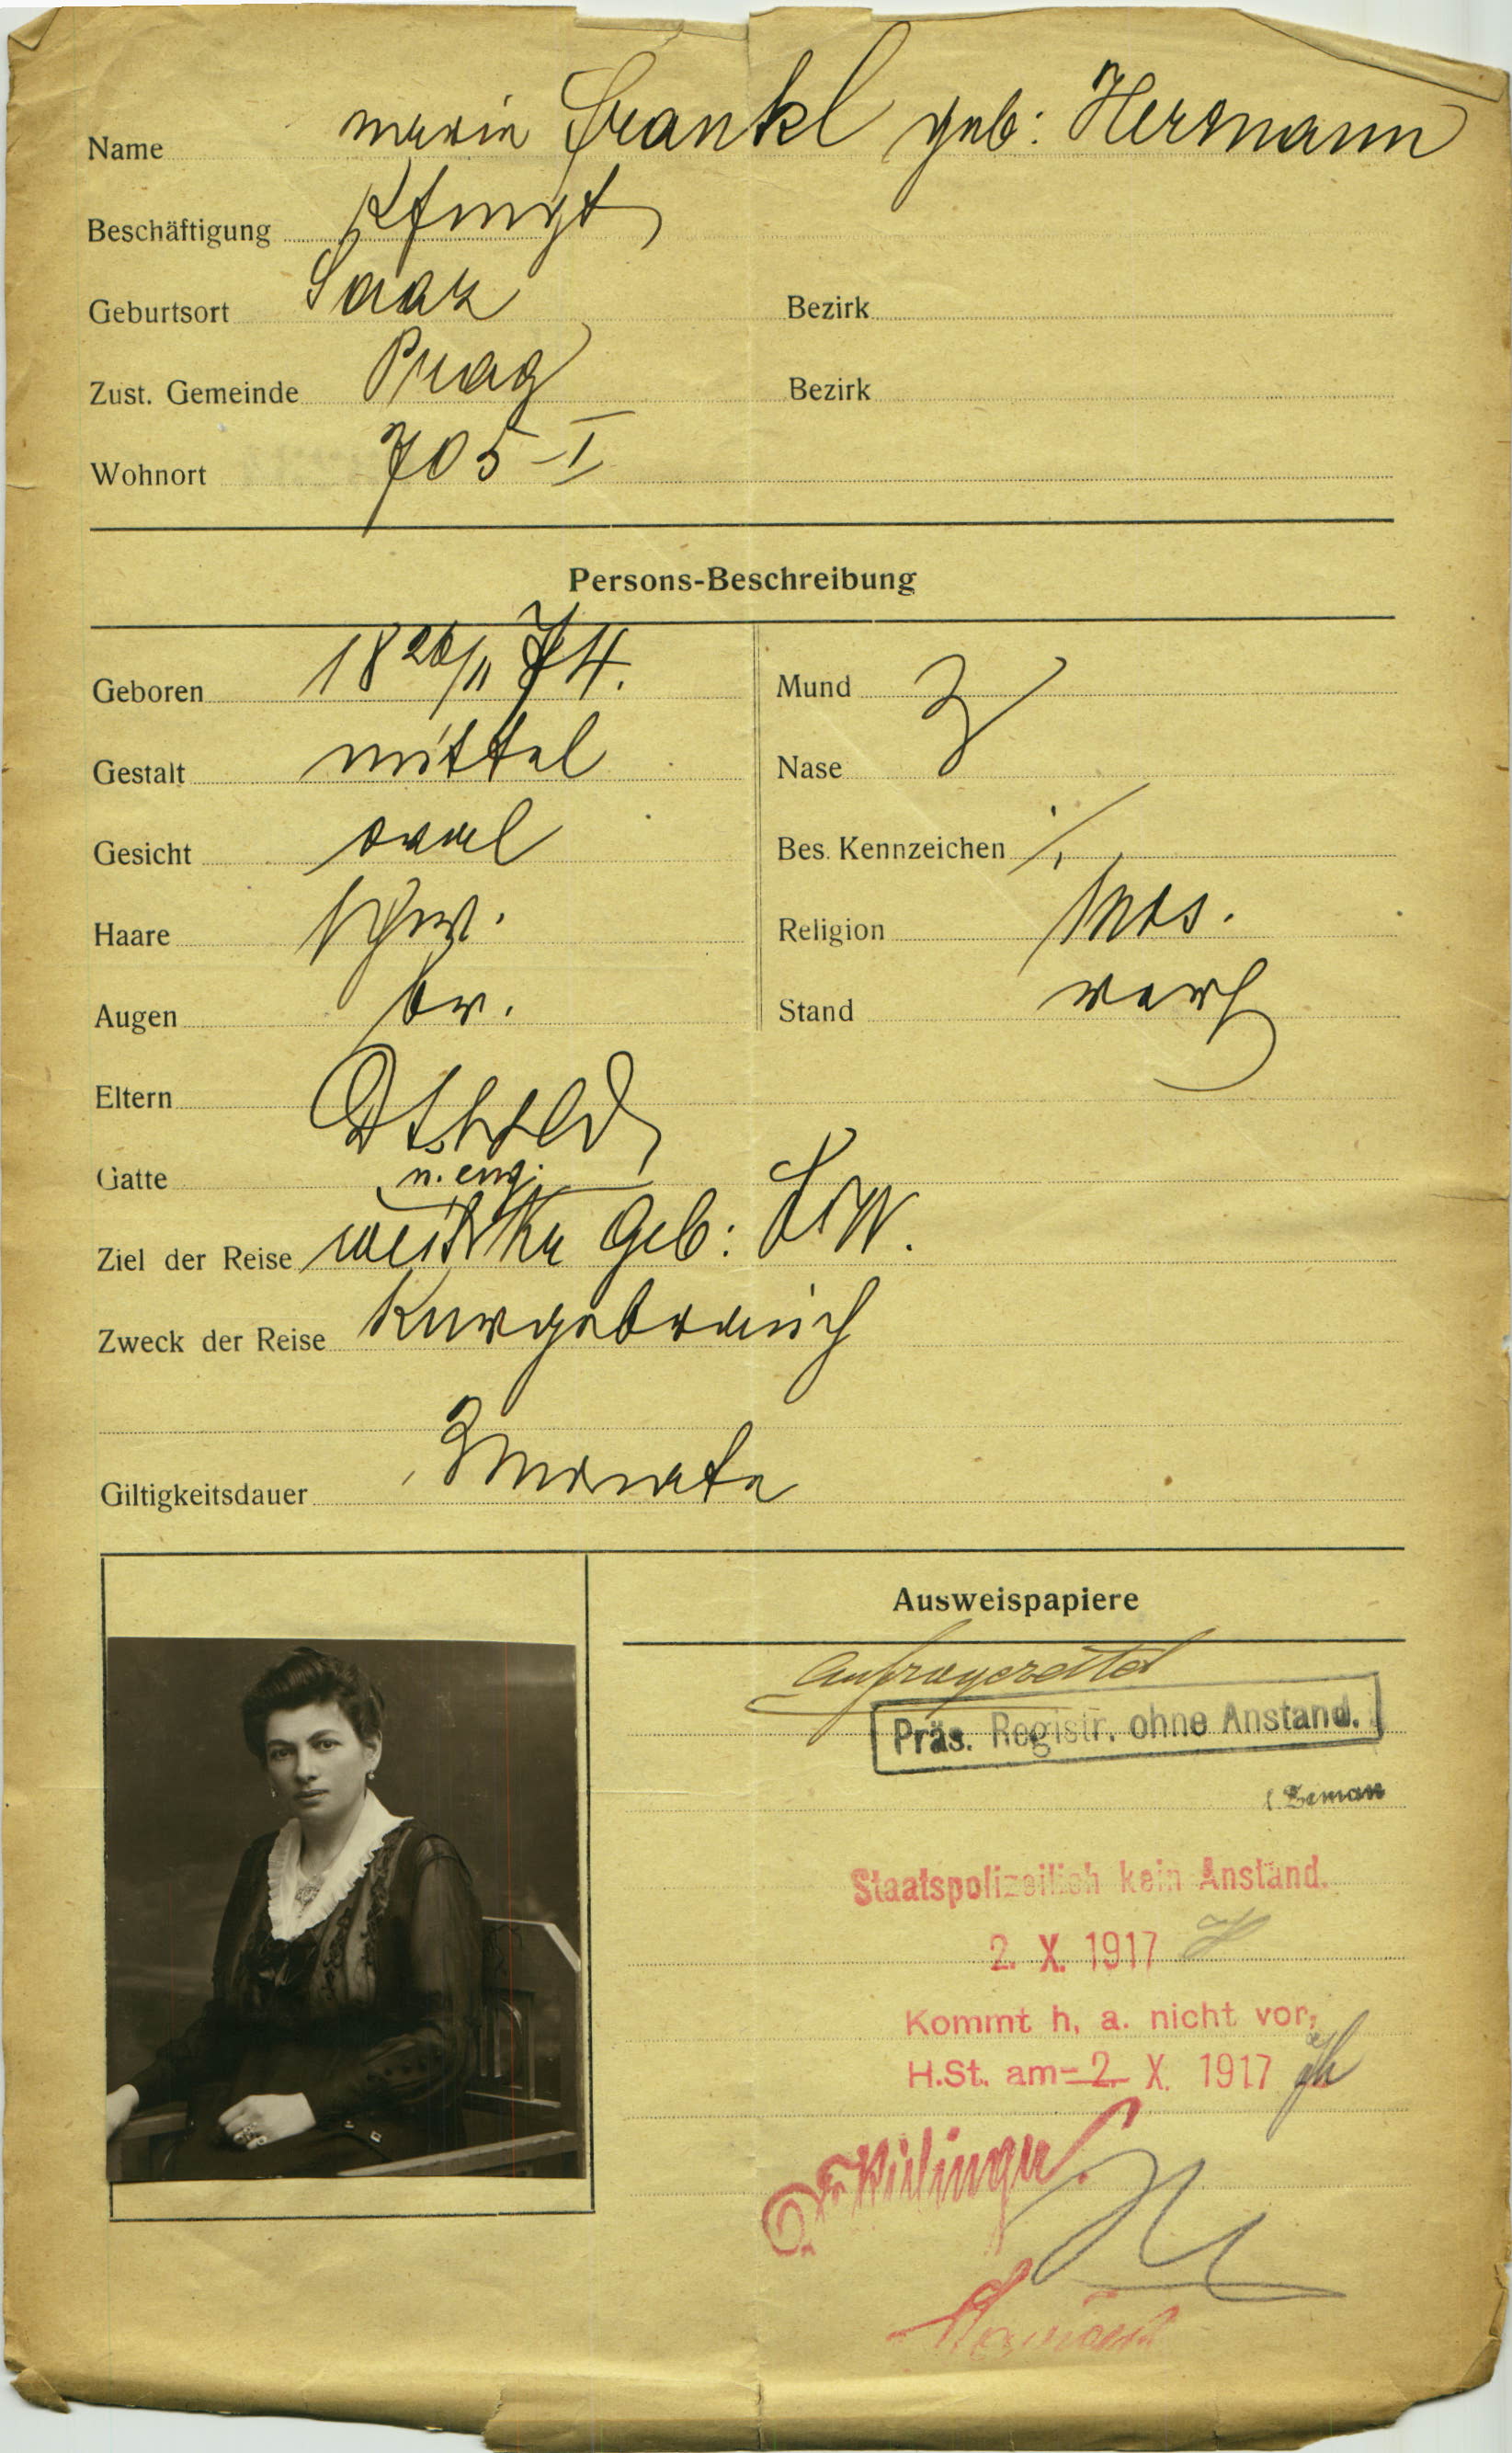 Name Marie Frankl geb: Herrmann
Beschäftigung
Geburtsort Saaz Bezirk
Zust. Gemeinde Prag Bezirk
Wohnort 705-I
Persons-Beschreibung
Geboren 18 26/11 74. Mund
Gestalt mittel Nase
Gesicht oval Bes. Kennzeichen ./.
Haare schw. Religion Mos.
Augen br. Stand verh
Eltern
Gatte
Ziel der Reise Geb: Löw.
Zweck der Reise Kurgebrauch
Giltigkeitsdauer 3 Monate
Ausweispapiere
Anfragezettel
Präs. Registr. ohne Anstand.
Zeman
Staatspolizeilich kein Anstand.
2. X. 1917
Kommt h. a. nicht vor,
H.St. am 2. X. 1917